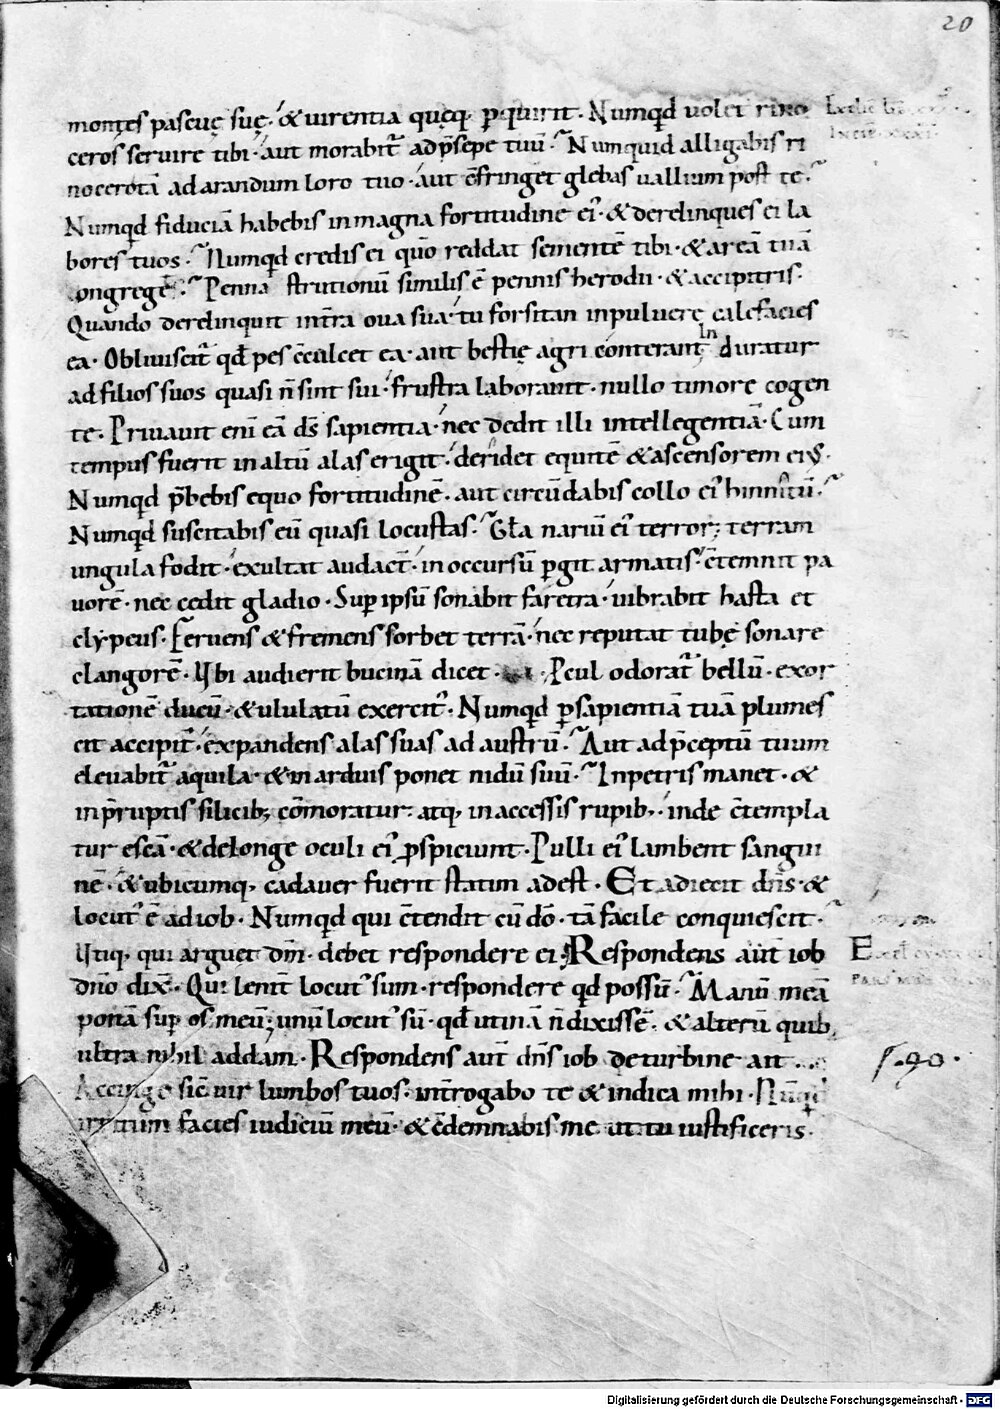 20
montes pascuę suę· & uirentia quęq; p̱quirit· Numq̇d uolet rino
ceros seruire tibi· aut morabit̃ ad p̃sepe tuũ· Numquid alligabis ri
nocerota᷄ ad arandum loro tuo· aut c̄fringet glebas uallium post te·
Numq̇d fiduciā habebis in magna fortitudine ei᾽· & derelinques ei la
bores tuos· Numq̇d credis ei quō reddat sementē tibi· & areā tuā
ongregē· Penna strutionū similis ē pennis herodii· & accipitris·
Quando derelinquit int̃ra oua sua· tu forsitan in puluere calefacies
ea· Obliuiscit̃ qd̄ pes c̄culcet ea· aut bestię agri conterant· duratur
ad filios suos quasi ñ sint sui· frustra laborauit· nullo timore cogen
te· Priuauit enī eā d̄s sapientia· nec dedit illi intellegentiā· Cum
tempus fuerit in altū alas erigit· deridet equitē & ascensorem ei᾽·
Numq̇d p̃bebis equo fortitudinē· aut circūdabis collo ei᾽ hinnitū·
Numq̇d suscitabis eū quasi locustas· Gl̄a nariū ei᾽ terror; terram
ungula fodit· exultat audact̄· in occursū p̱git armatis· c̄temnit pa
uorē· nec cedit gladio· Sup̱ ipsū sonabit faretra· uibrabit hasta et
clypeus· Feruens & fremens sorbet terrā· nec reputat tubę sonare
clangorē· Ubi audierit bucinā dicet · Pcul odorat̃ bellū· exor
tationē ducū· & ululatū exercit᾽· Numq̇d p̱ sapientiā tuā plumes
cit accipit̃· expandens alas suas ad austrū· Aut ad p̃ceptū tuum
eleuabit̃ aquila· & in arduis ponet nidū suū· In petris manet· &
in p̃ruptis silicib; cōmoratur· atq; inaccessis rupib;· inde c̄templa
tur escā· & de longe oculi ei᾽ p̱spiciunt· Pulli ei᾽ lambent sangui
nē· & ubicumq; cadauer fuerit statim adest· Et adiecit dn̄s· &
locut᾽ ē ad iob· Numq̇d qui c̄tendit cū dō· tā facile conquiescit·
Utiq; qui arguet dm̄· debet respondere ei· Respondens aūt iob
dn̄o dix̄· Qui lenit̄ locut᾽ sum· respondere qd̄ possū· Manū meā
ponā sup̱ os meū; unū locut᾽ sū· qd̄ utinā ñ dixissē· & alterū quib;
ultra nihil addam· Respondens aut̄ dn̄s iob de turbine ait
Accinge sic̄ uir lumbos tuos· int̃rogabo te & indica mihi· Nūq̇d
irritum facies iudiciū meū· & c̄demnabis me ut tu iustificeris·
Digitalisierung gefördert durch die Deutsche Forschungsgemeinschaft - DFG